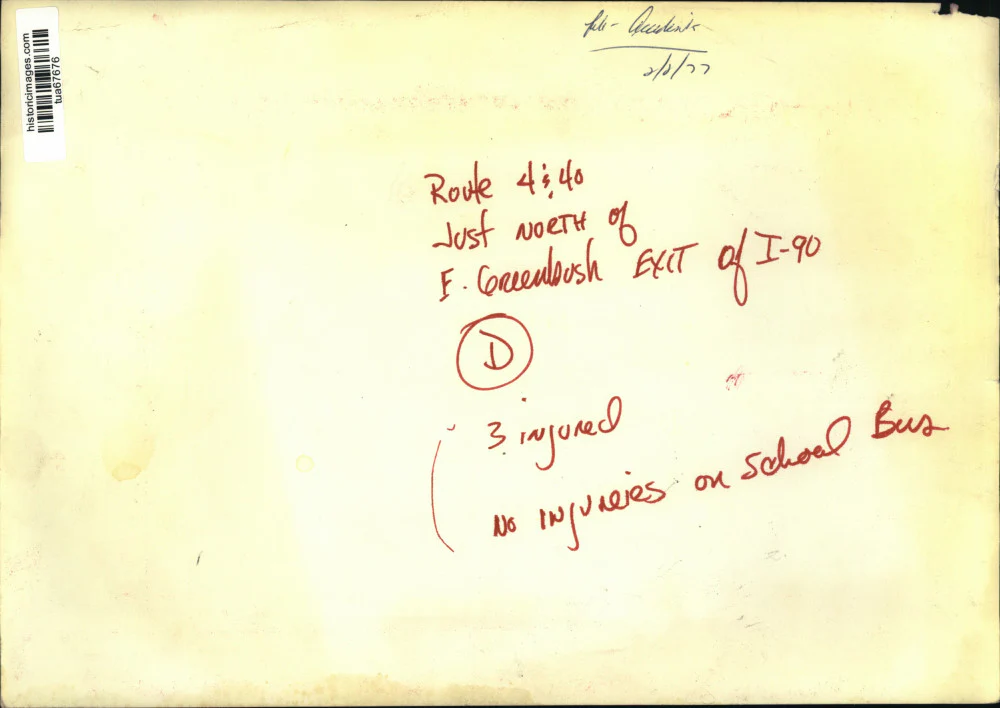 historicimages.com
tua67676
file - Accidents
2/2/77
Route 4 & 40
Just NORTH of
E. Greenbush EXIT of I-90
D
3 injured
No INJURIES on School Bus